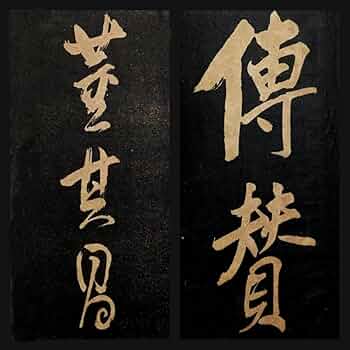 傳贊
董其昌